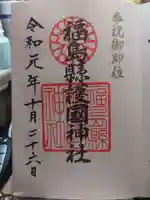 奉祝御即位
福島縣護國神社
令和元年十月二十六日